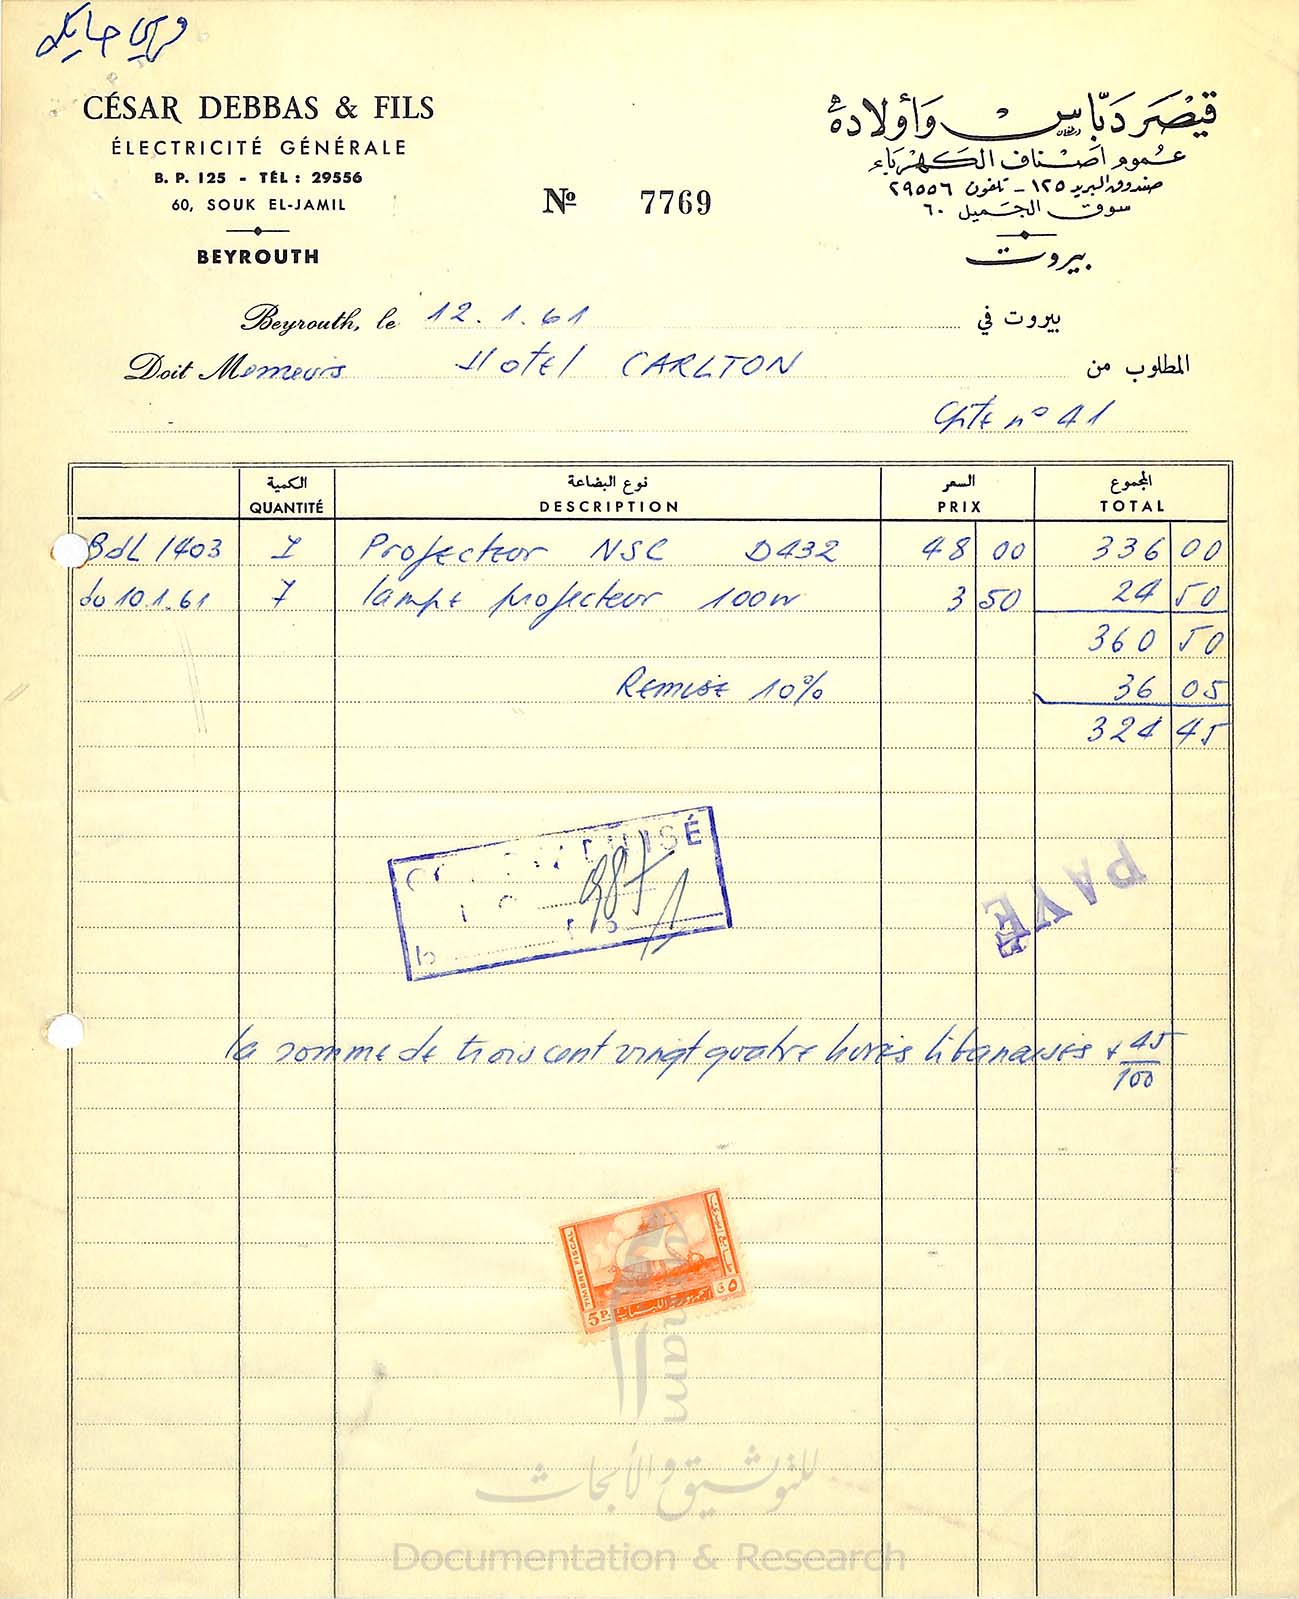 CÉSAR DEBBAS & FILS
ÉLECTRICITÉ GÉNÉRALE
B. P. 125 - TÉL : 29556
60, SOUK EL-JAMIL
BEYROUTH
Nº 7769
قيصر دبّاس وأولاده
عموم اصناف الكهرباء
صندوق البريد ١٢٥ - تلفون ٢٩٥٥٦
سوق الجميل ٦٠
بيروت
Beyrouth, le 12.1.61 بيروت في
Doit Messieurs Hotel CARLTON المطلوب من
Cpte nº 41
الكمية نوع البضاعة السعر المجموع
QUANTITÉ DESCRIPTION PRIX TOTAL
BdL 1403 7 Projecteur NSC D432 48 00 336 00
du 10.1.61 7 lampe projecteur 100w 3 50 24 50
360 50
Remise 10% 36 05
324 45
PAYÉ
la somme de trois cent vingt quatre livres libanaises + 45/100
TIMBRE FISCAL
طابع اميري
5 P. الجمهورية اللبنانية ٥ ق
للتوثيق والأبحاث
Documentation & Research